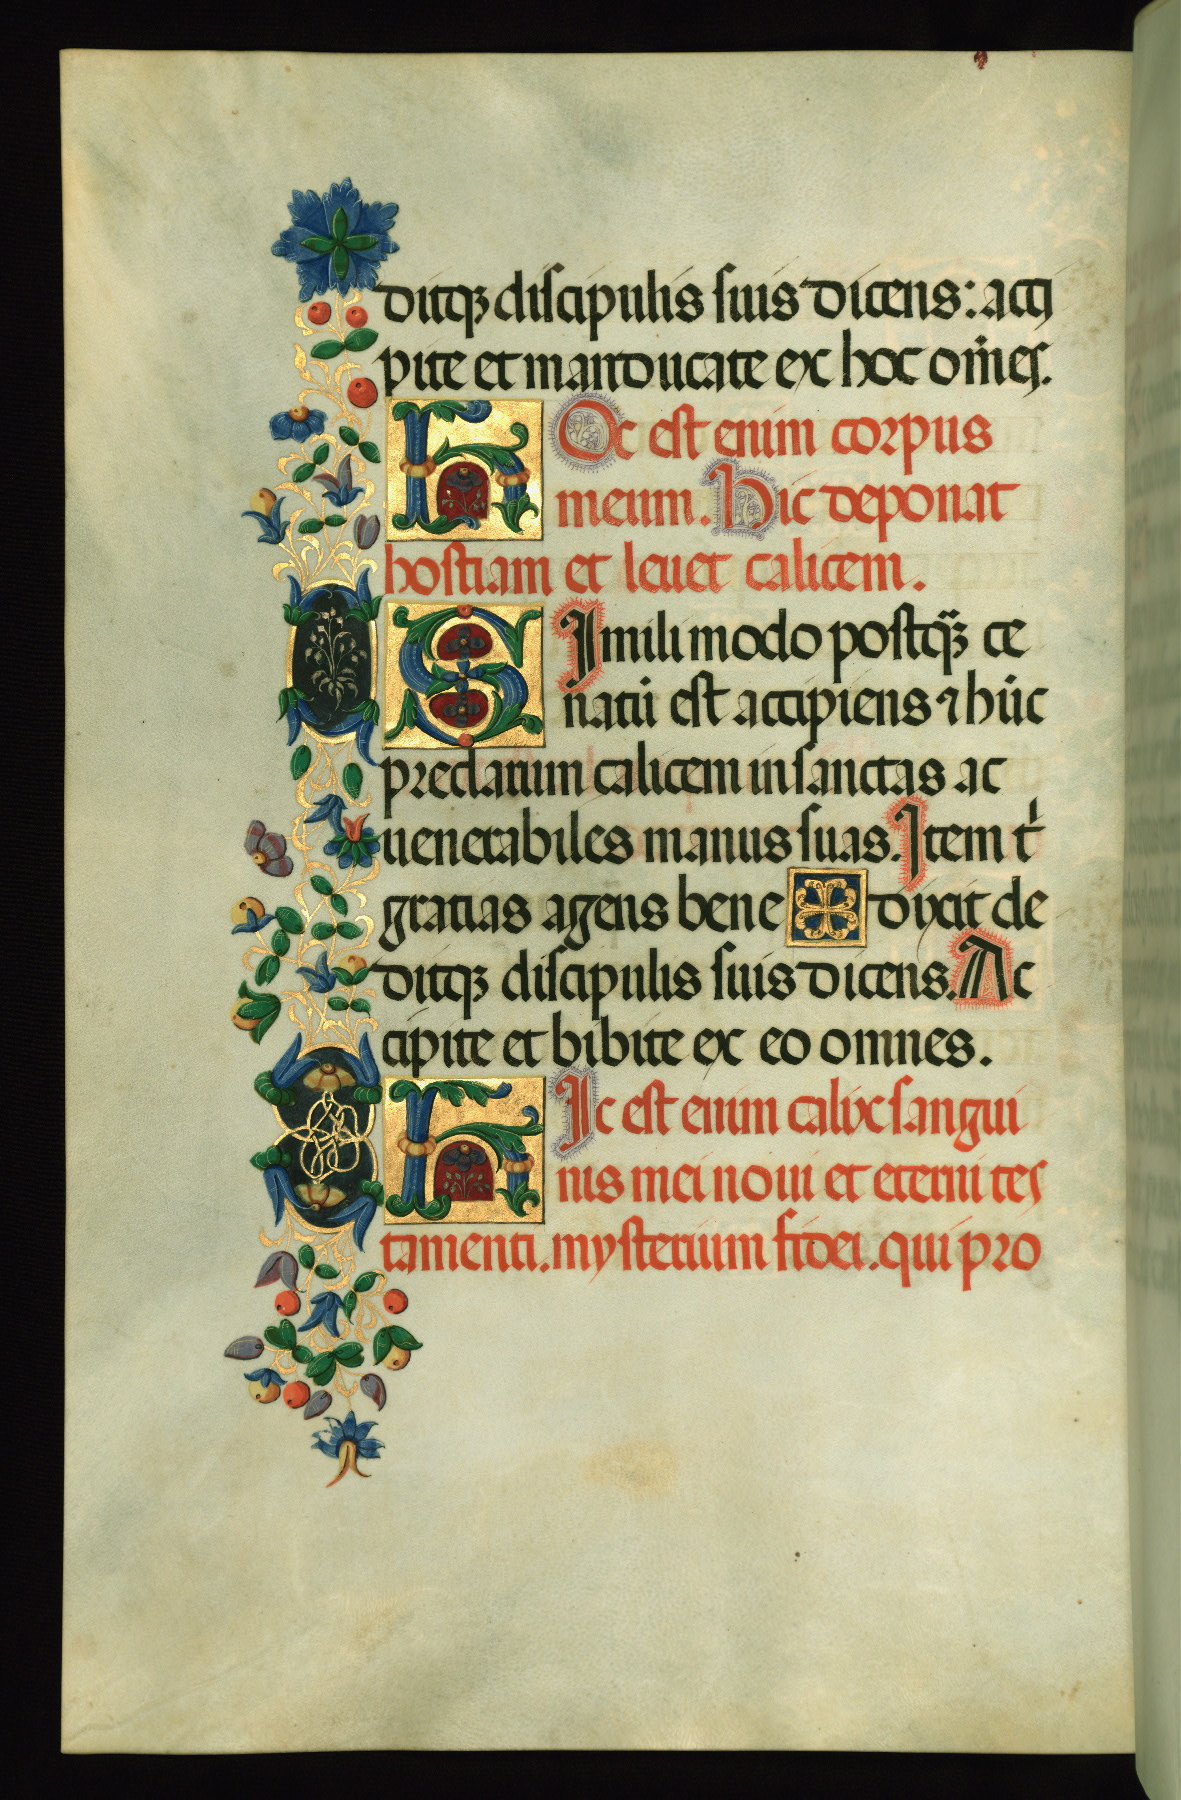 ditqꝫ discipulis suis dicens: acci
pite et manducate ex hoc om̄es.
HOc est enim corpus
meum. Hic deponat
hostiam et leuet calicem.
SImili modo postqꝫ̄ ce
natū est accipiens ⁊ hūc
preclarum calicem in sanctas ac
uenerabiles manus suas. Item t'
gratias agens bene ✠ dixit de
ditqꝫ discipulis suis dicens. Ac
cipite et bibite ex eo omnes.
HIc est enim calix sangui
nis mei noui et eterni tes
tamenti. mysterium fidei. qui pro